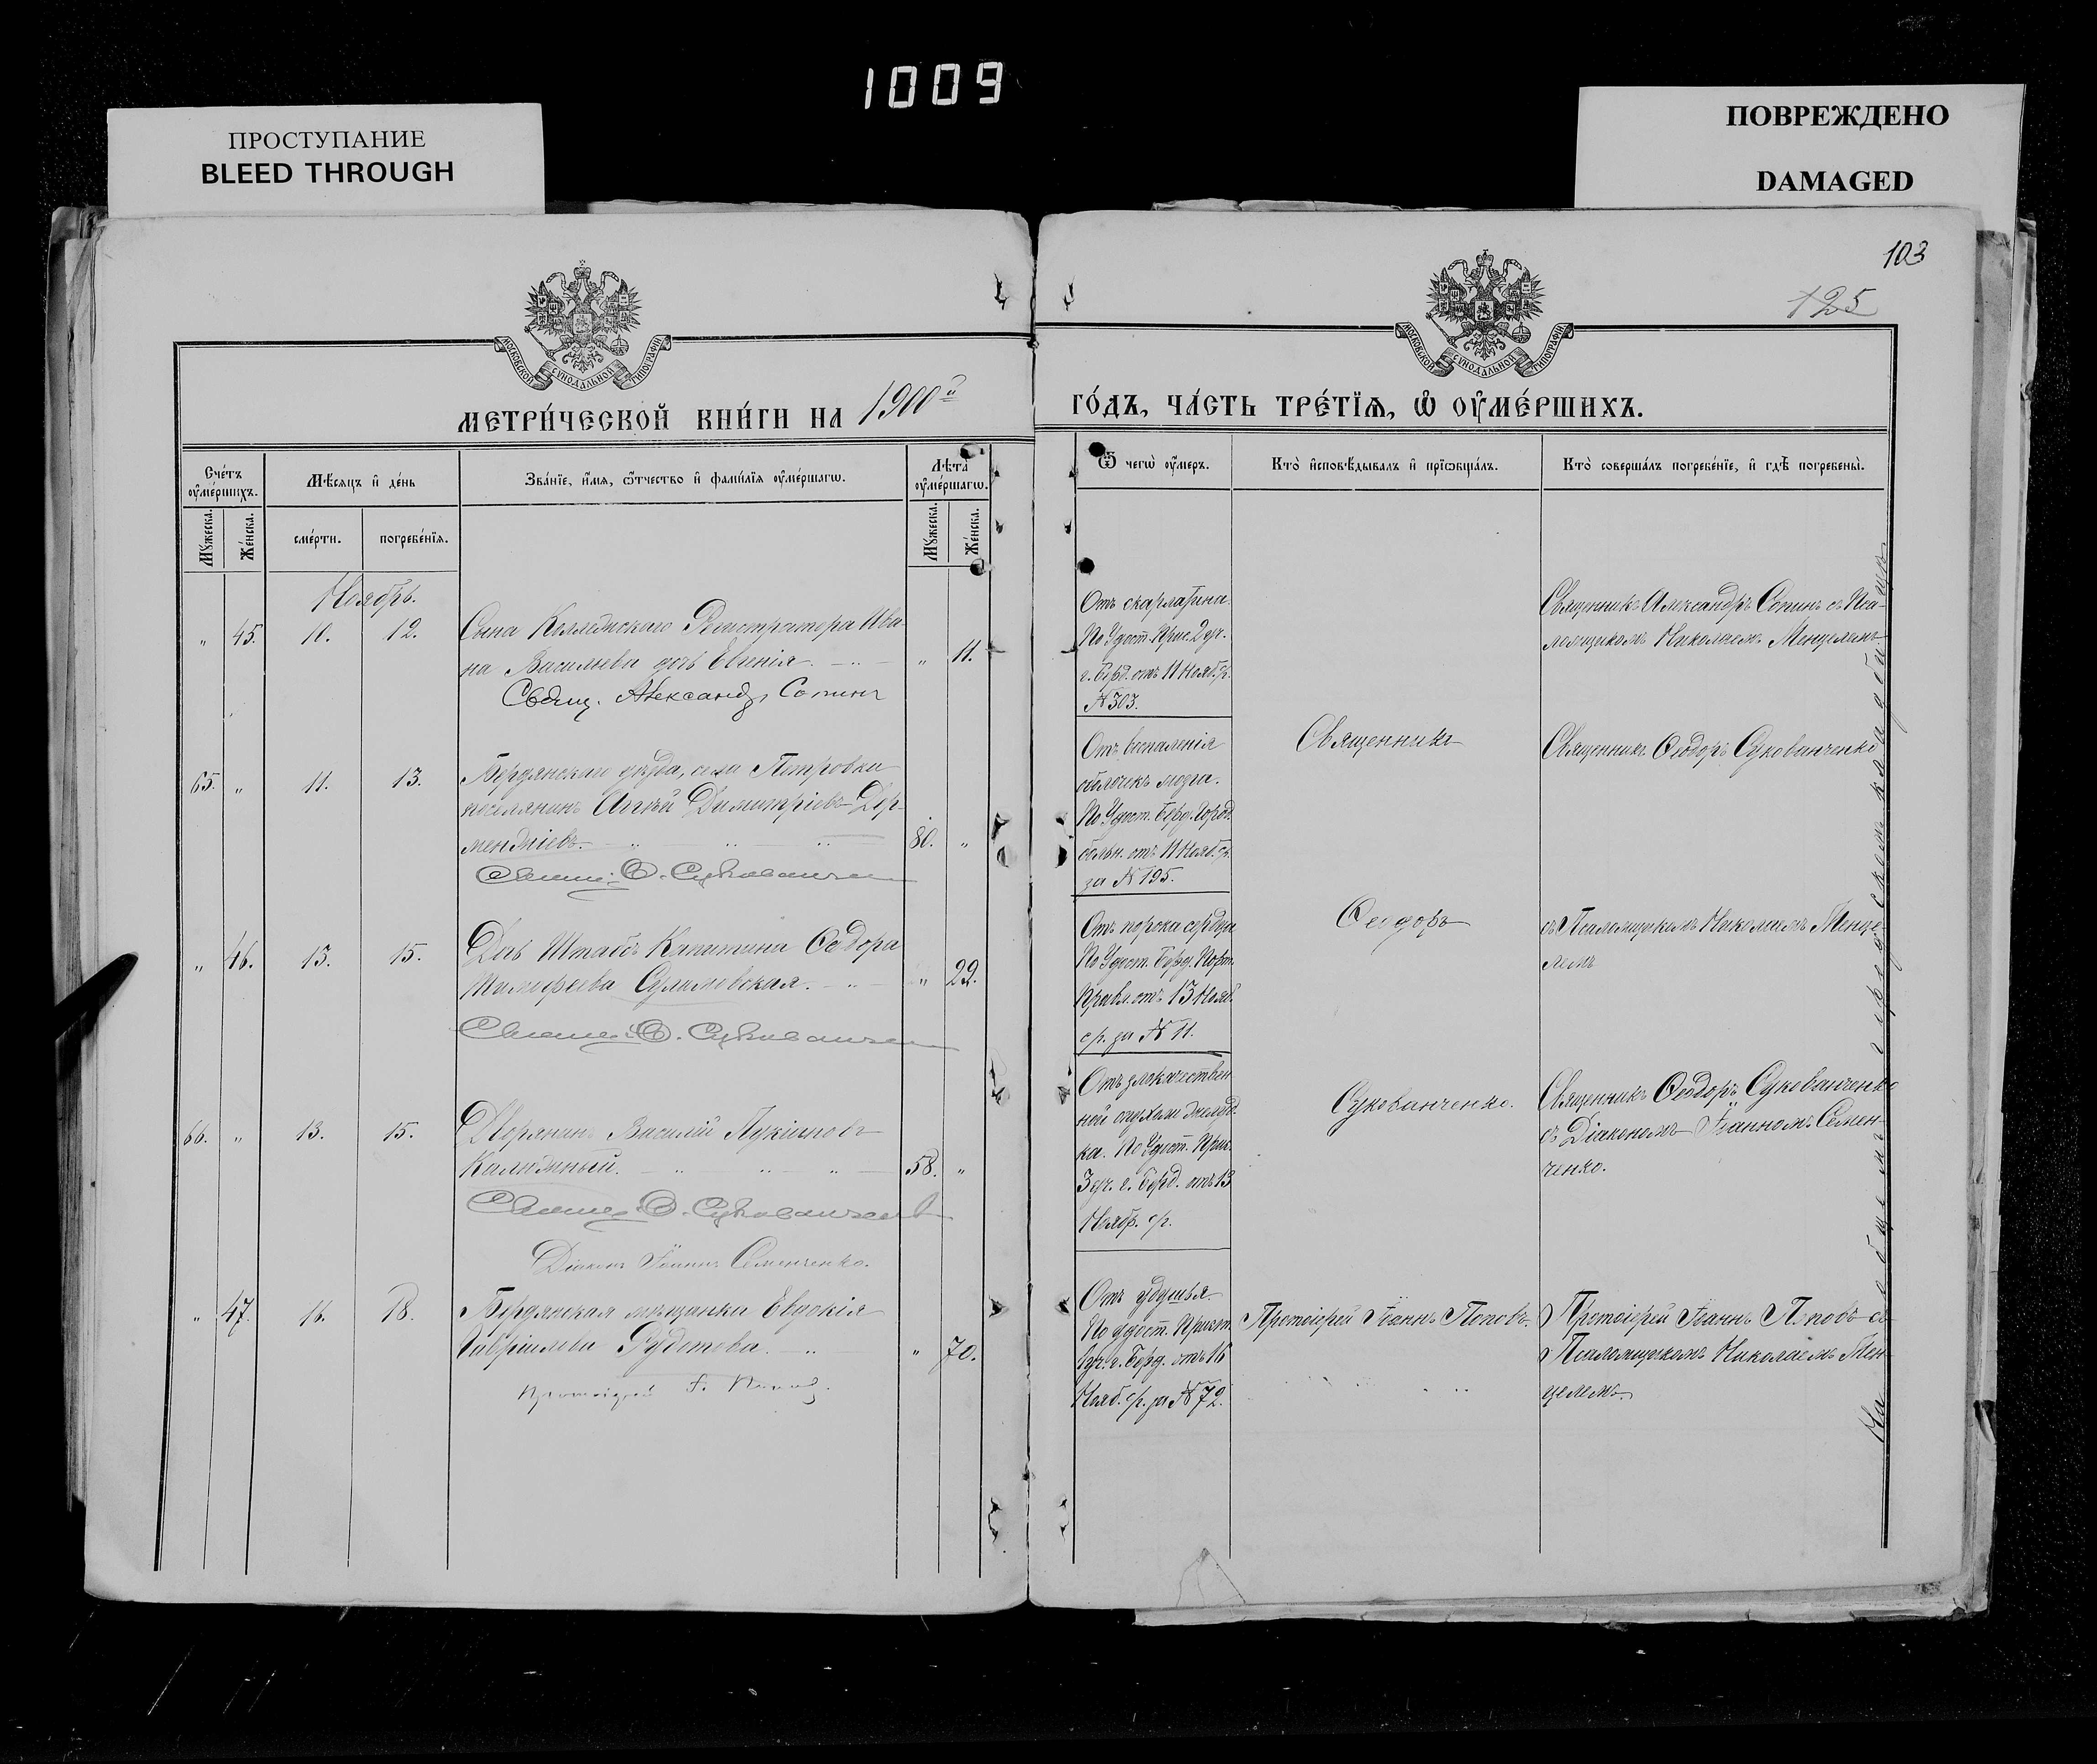 1009
ПРОСТУПАНИЕ
BLEED THROUGH
ПОВРЕЖДЕНО
DAMAGED
103
125
МОСКОВСКОЙ СУНОДАЛЬНОЙ ТИПОГРАФІИ
МОСКОВСКОЙ СУНОДАЛЬНОЙ ТИПОГРАФІИ
МЕТРИ́ЧЕСКОЙ КНИ́ГИ НА 1900й
ГО́ДЪ, ЧА́СТЬ ТРЕ́ТЇѦ, Ѡ҆ ОУ҆МЕ́РШИХЪ.
Сче́тъ оу҆ме́ршихъ.
Мѣ́сяцъ и҆ де́нь
Зва́нїе, и҆́мя, ѻ҆́тчество и҆ фами́лїя оу҆ме́ршагѡ.
Лѣ́та оу҆ме́ршагѡ.
Мꙋ́жеска.
Же́нска.
сме́рти.
погребе́нїя.
Мꙋ́жеска.
Же́нска.
Ѿ чегѡ̀ оу҆́меръ.
Кто̀ и҆сповѣ́дывалъ и҆ прїѡбща́лъ.
Кто̀ соверша́лъ погребе́нїе, и҆ гдѣ̀ погребены̀.
Ноябрь.
" 45. 10. 12.
Сына Коллежскаго Регистратора Ива-
на Васильева дочь Евгенія.
" 11.
Свящ. Александр Сопинъ
Отъ скарлатина.
По Удост. Прис. 2 уч.
г. Берд. отъ 11 Нояб. с/г.
№ 303.
Священникъ Александръ Сопинъ съ Пса-
ломщикомъ Николаемъ Менцелемъ
65. " 11. 13.
Бердянскаго уѣзда, села Петровки
поселянинъ Димитріевъ Дер-
менжіевъ.
80. "
Свящ. Ѳ. Сукованченко
Отъ воспаленія
оболочекъ мозга.
По Удост. Берд. Город.
больн. отъ 11 Нояб. с/г.
за № 195.
Священникъ
Священникъ Ѳеодоръ Сукованченко
" 46. 13. 15.
Дочь Штабсъ Капитана Ѳедора
Тимофеева
" 22.
Свящ. Ѳ. Сукованченко
Отъ порока сердца
По Удост. Берд. Порт.
Правл. отъ 13 Нояб.
с/г. за № 11.
Ѳеодоръ
съ Псаломщикомъ Николаемъ Менце-
лемъ
66. " 13. 15.
Дворянинъ Василій Лукіановъ
Калюжный.
58. "
Свящ. Ѳ. Сукованченко
Діаконъ Іоаннъ Семенченко.
Отъ злокачествен-
ной опухоли желуд-
ка. По Удост. Прис.
3 уч. г. Берд. отъ 13
Нояб. с/г.
Сукованченко.
Священникъ Ѳеодоръ Сукованченко
съ Діакономъ Іоанномъ Семен-
ченко.
" 47. 16. 18.
Бердянская мѣщанка Евдокія
Гавріилова
" 70.
Протоіерей І. Поповъ.
Отъ удушья.
По удост. Прист.
1 уч. г. Берд. отъ 16
Нояб. с/г. за № 72.
Протоіерей Іоаннъ Поповъ.
Протоіерей Іоаннъ Поповъ съ
Псаломщикомъ Николаемъ Мен-
целемъ.
На общемъ городскомъ кладбищѣ.